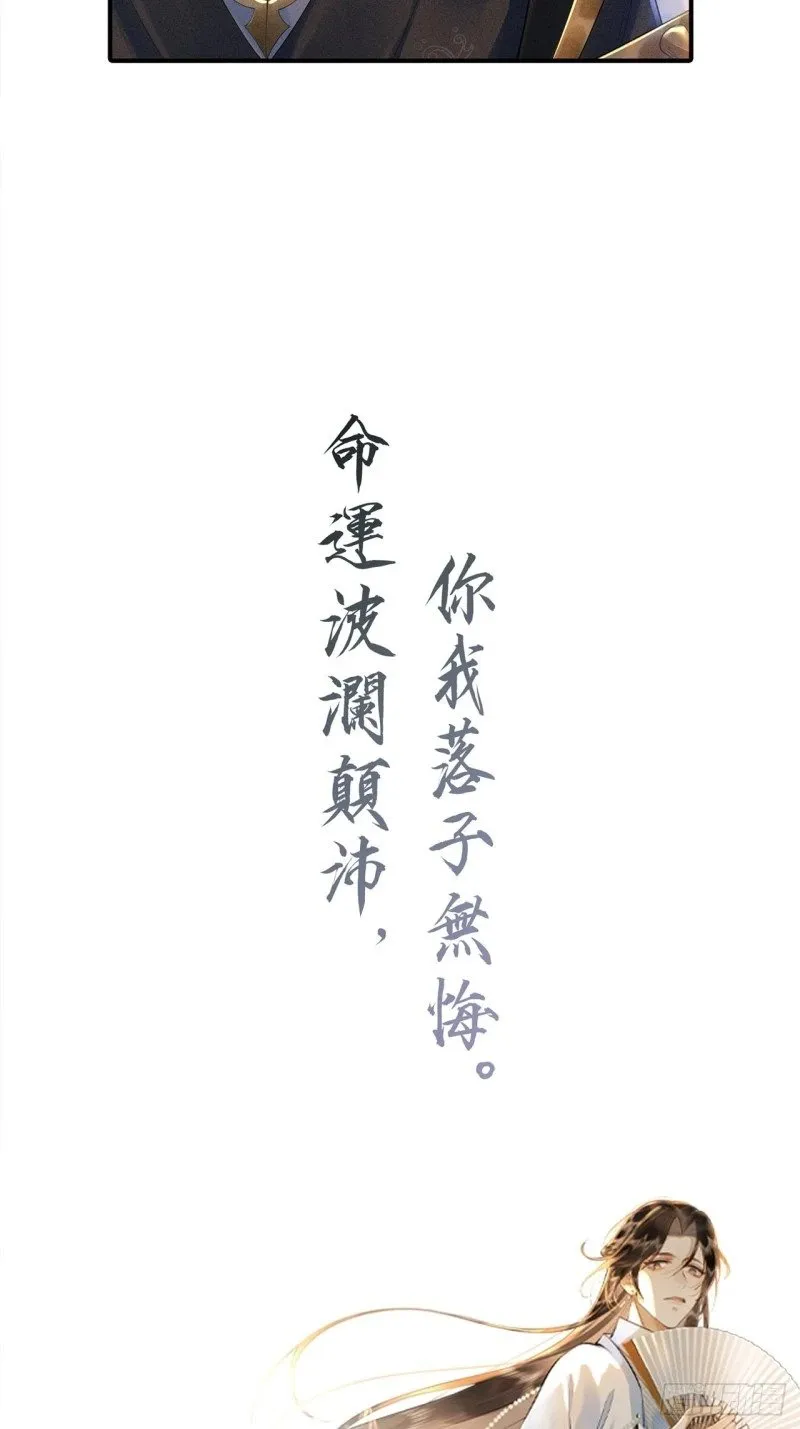 命運波瀾顛沛，
你我落子無悔。